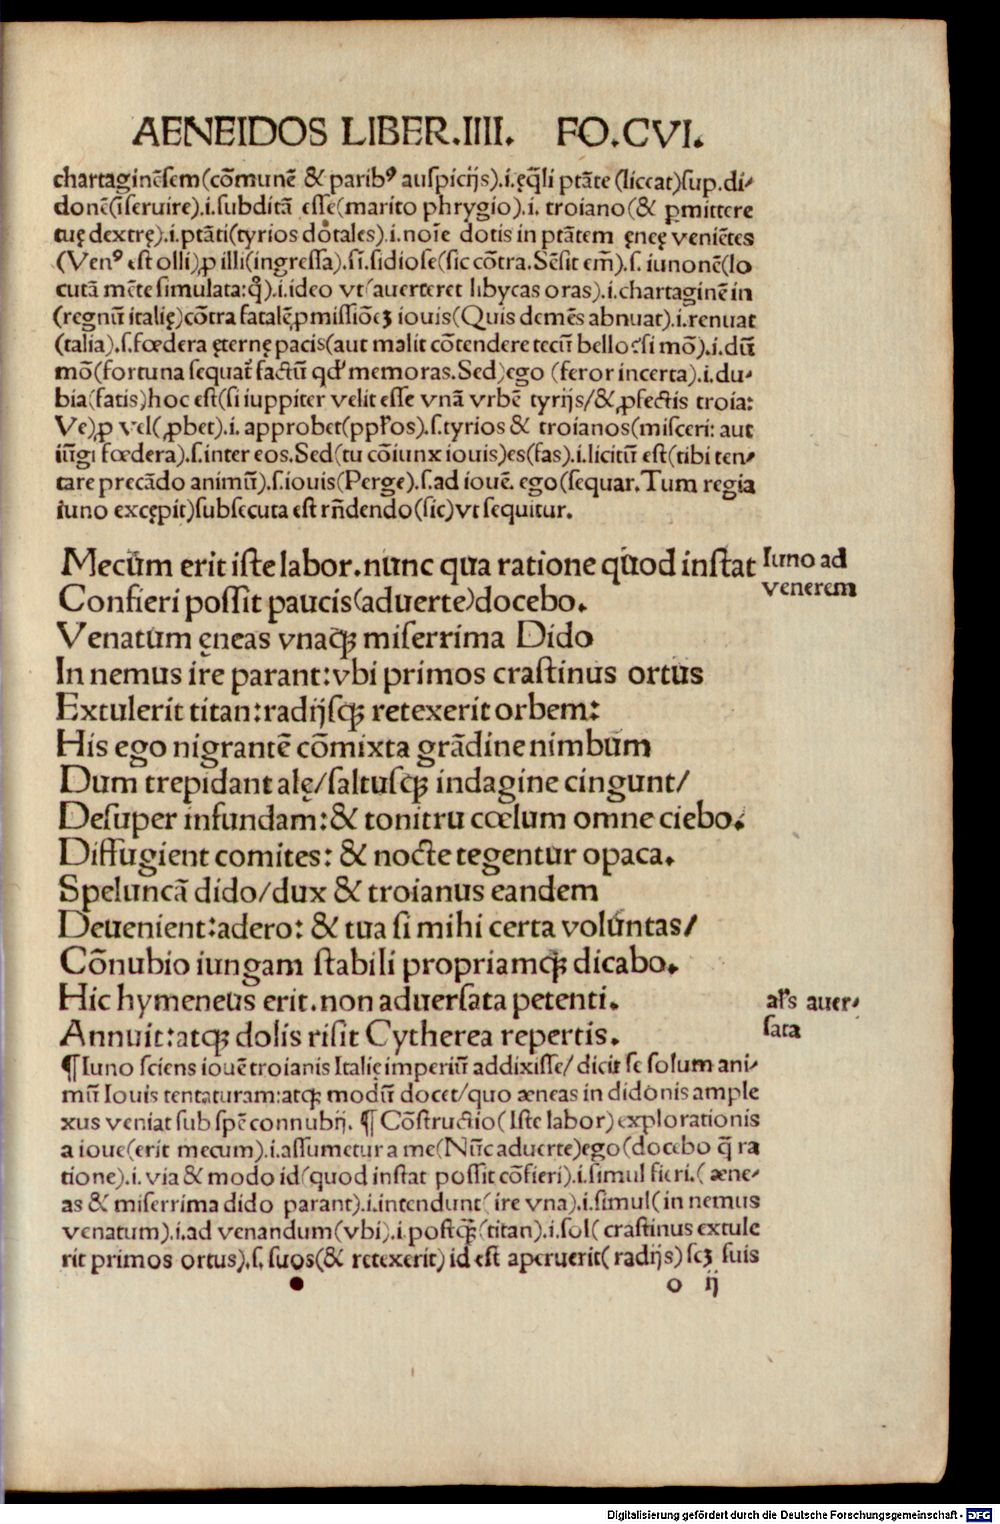 AENEIDOS LIBER.IIII. FO.CVI.
chartaginēsem(cōmunē & paribꝰ auspicijs).i.ęq̄li ptāte (liceat)sup.di⸗
donē(īseruire).i.subditā esse(marito phrygio).i. troiano(& ꝑmittere
tuę dextrę).i.ptāti(tyrios dotales).i.noīe dotis in ptātem ęneę veniētes
(Venꝰ est olli)ꝓ illi(ingressa).sī.sidiose(sic cōtra.Sēsit em̄).s. iunonē(lo
cutā mēte simulata:q̄).i.ideo vt(auerteret libycas oras).i.chartaginē in
(regnū italię)cōtra fatalē ꝓmissiōeꝫ iouis(Quis demēs abnuat).i.renuat
(talia).s.fœdera ęternę pacis(aut malit cōtendere tecū bello:si mō).i.dū
mō(fortuna sequat̄ factū qd̄ memoras.Sed)ego (feror incerta).i.du⸗
bia(fatis)hoc est(si iuppiter velit esse vnā vrbē tyrijs/&ꝓfectis troia:
Ve)ꝓ vel(ꝓbet).i.approbet(pp̄los).s.tyrios & troianos(misceri: aut
iūgi fœdera).s.inter eos.Sed(tu cōiunx iouis)es(fas).i.licitū est(tibi ten⸗
tare precādo animū).s.iouis(Perge).s.ad iouē. ego(sequar.Tum regia
iuno excępit)subsecuta est rn̄dendo(sic)vt sequitur.
Mecum erit iste labor.nunc qua ratione quod instat
Iuno ad
venerem
Confieri possit paucis(aduerte)docebo.
Venatum ęneas vnaqꝫ miserrima Dido
In nemus ire parant:vbi primos crastinus ortus
Extulerit titan:radijsqꝫ retexerit orbem:
His ego nigrantē cōmixta grādine nimbum
Dum trepidant alę/saltusqꝫ indagine cingunt/
Desuper infundam:& tonitru cœlum omne ciebo.
Diffugient comites: & nocte tegentur opaca.
Speluncā dido/dux & troianus eandem
Deuenient:adero: & tua si mihi certa voluntas/
Cōnubio iungam stabili propriamqꝫ dicabo.
Hic hymeneus erit.non aduersata petenti.
al's auer⸗
sata
Annuit:atqꝫ dolis risit Cytherea repertis.
¶Iuno sciens iouē troianis Italię imperiū addixisse/ dicit se solum ani⸗
mū Iouis tentaturam:atqꝫ modū docet/quo æneas in didonis ample
xus veniat sub spē connubij. ¶ Cōstructio(Iste labor)explorationis
a ioue(erit mecum).i.assumetur a me(Nūc aduerte)ego(docebo q̄ ra
tione).i. via & modo id(quod instat possit cōfieri).i.simul fieri.( æne⸗
as & miserrima dido parant).i.intendunt(ire vna).i.simul(in nemus
venatum).i.ad venandum(vbi).i.postqꝫ(titan).i.sol( crastinus extule
rit primos ortus).s. suos(& retexerit)id est aperuerit(radijs)scꝫ suis
o ij
Digitalisierung gefördert durch die Deutsche Forschungsgemeinschaft - DFG